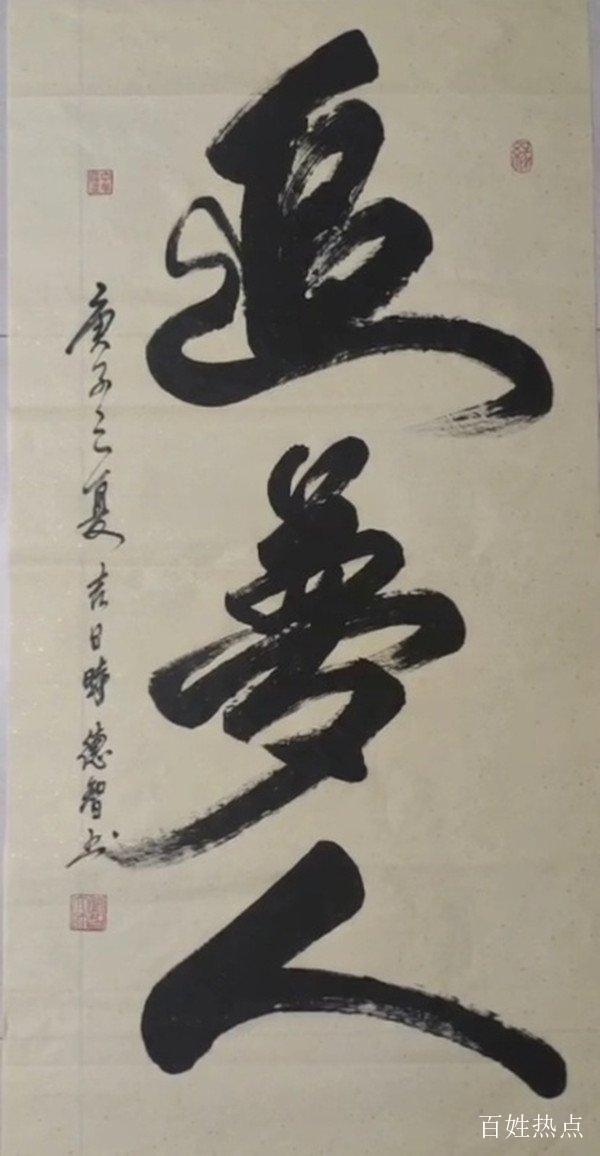 追梦人
庚子之夏吉日时德智书
百姓热点